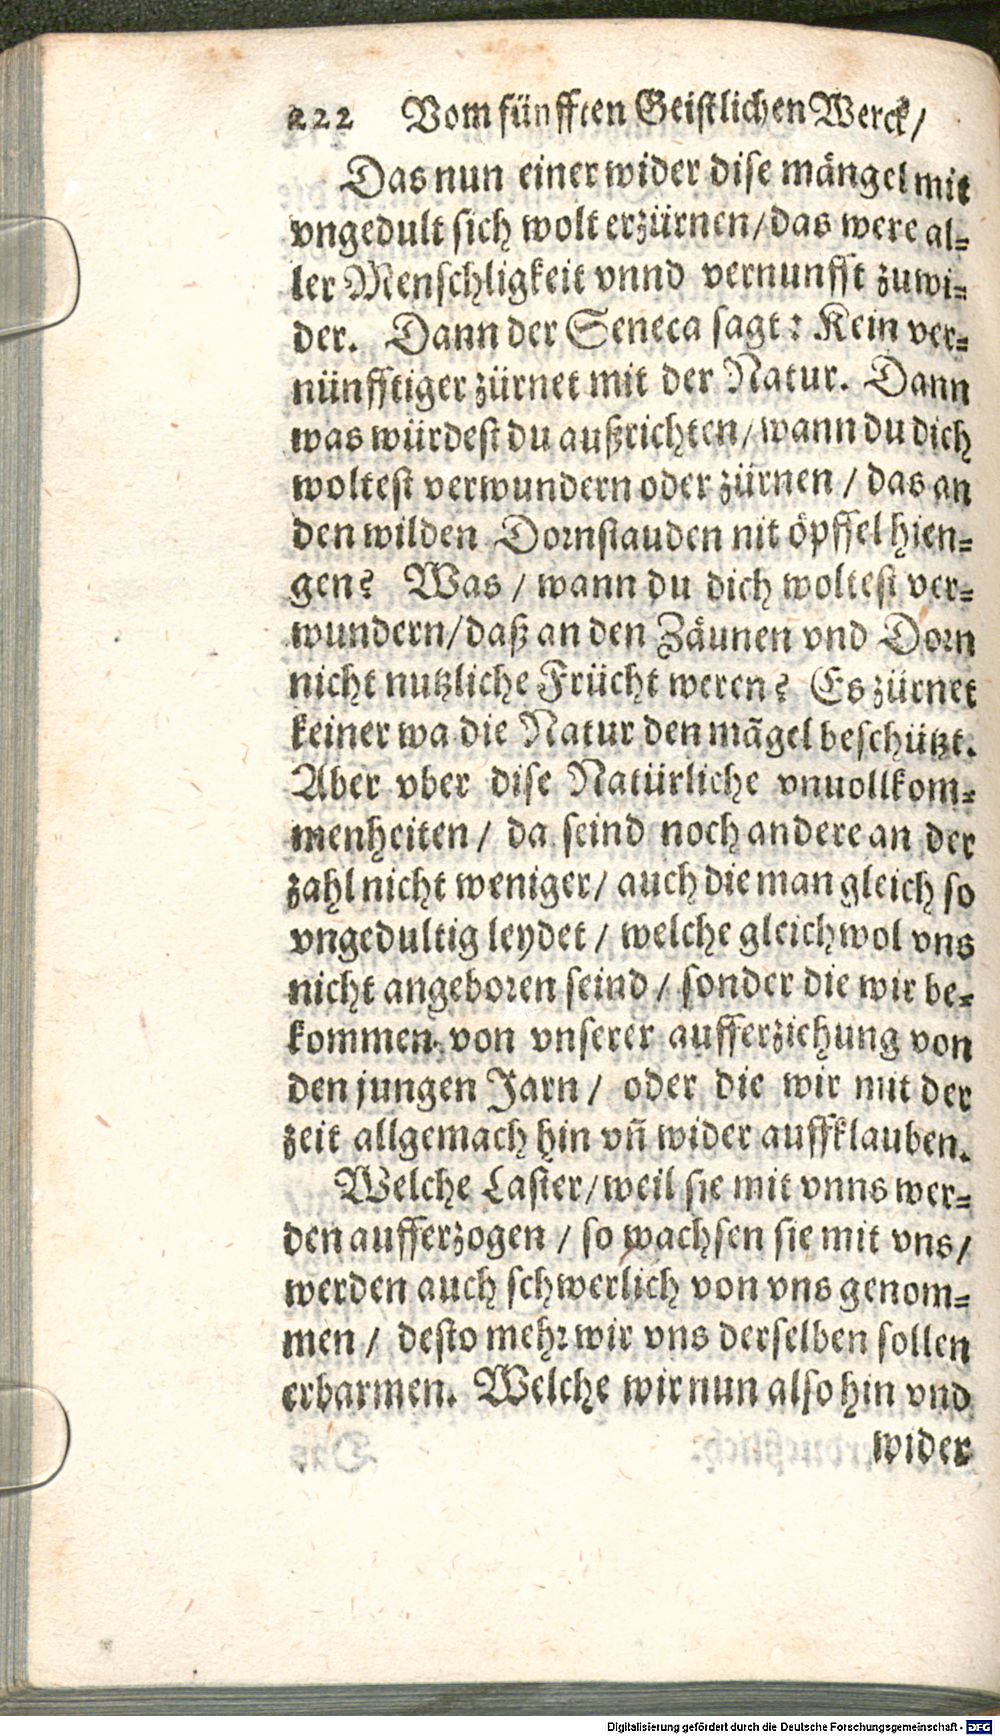 222 Vom fünfften Geistlichen Werck /
Das nun einer wider dise mängel mit
vngedult sich wolt erzürnen / das were al=
ler Menschligkeit vnnd vernunfft zuwi=
der. Dann der Seneca sagt : Kein ver=
nünfftiger zürnet mit der Natur. Dann
was würdest du außrichten / wann du dich
woltest verwundern oder zürnen / das an
den wilden Dornstauden nit öpffel hien=
gen? Was / wann du dich woltest ver=
wundern / daß an den Zäunen vnd Dorn
nicht nutzliche Frücht weren? Es zürnet
keiner wa die Natur den mãgel beschützt.
Aber vber dise Natürliche vnuollkom=
menheiten / da seind noch andere an der
zahl nicht weniger / auch die man gleich so
vngedultig leydet / welche gleichwol vns
nicht angeboren seind / sonder die wir be=
kommen von vnserer aufferziehung von
den jungen Jarn / oder die wir mit der
zeit allgemach hin vñ wider auffklauben.
Welche Laster / weil sie mit vnns wer=
den aufferzogen / so wachsen sie mit vns /
werden auch schwerlich von vns genom=
men / desto mehr wir vns derselben sollen
erbarmen. Welche wir nun also hin vnd
wider
Digitalisierung gefördert durch die Deutsche Forschungsgemeinschaft - DFG